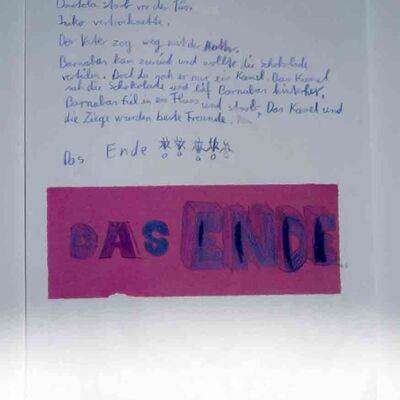 starb vor der Tür.
Der Vater zog weg mit der Mutter.
Barnabas kam zurück und wollte die Schokolade
Doch da sah er nur ein Kamel. Das Kamel
sah die Schokolade und lief Barnabas hinterher.
Barnabas fiel in ein Fluss und starb. Das Kamel und
die Ziege wurden beste Freunde.
Das Ende
DAS ENDE